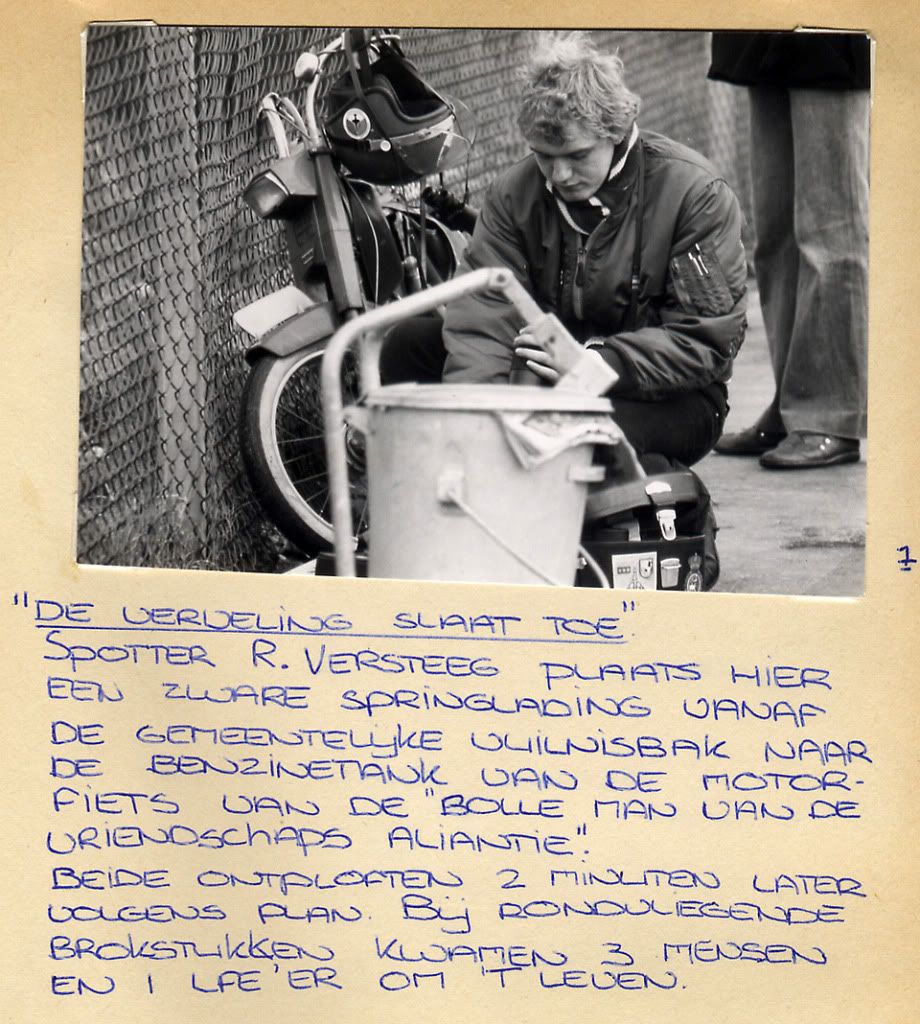 1
"DE VERVELING SLAAT TOE".
SPOTTER R. VERSTEEG PLAATS HIER
EEN ZWARE SPRINGLADING VANAF
DE GEMEENTELIJKE VUILNISBAK NAAR
DE BENZINETANK VAN DE MOTOR-
FIETS VAN DE "BOLLE MAN VAN DE
VRIENDSCHAPS ALIANTIE".
BEIDE ONTPLOFTEN 2 MINUTEN LATER
VOLGENS PLAN. BIJ RONDVLIEGENDE
BROKSTUKKEN KWAMEN 3 MENSEN
EN 1 LFE'ER OM 'T LEVEN.